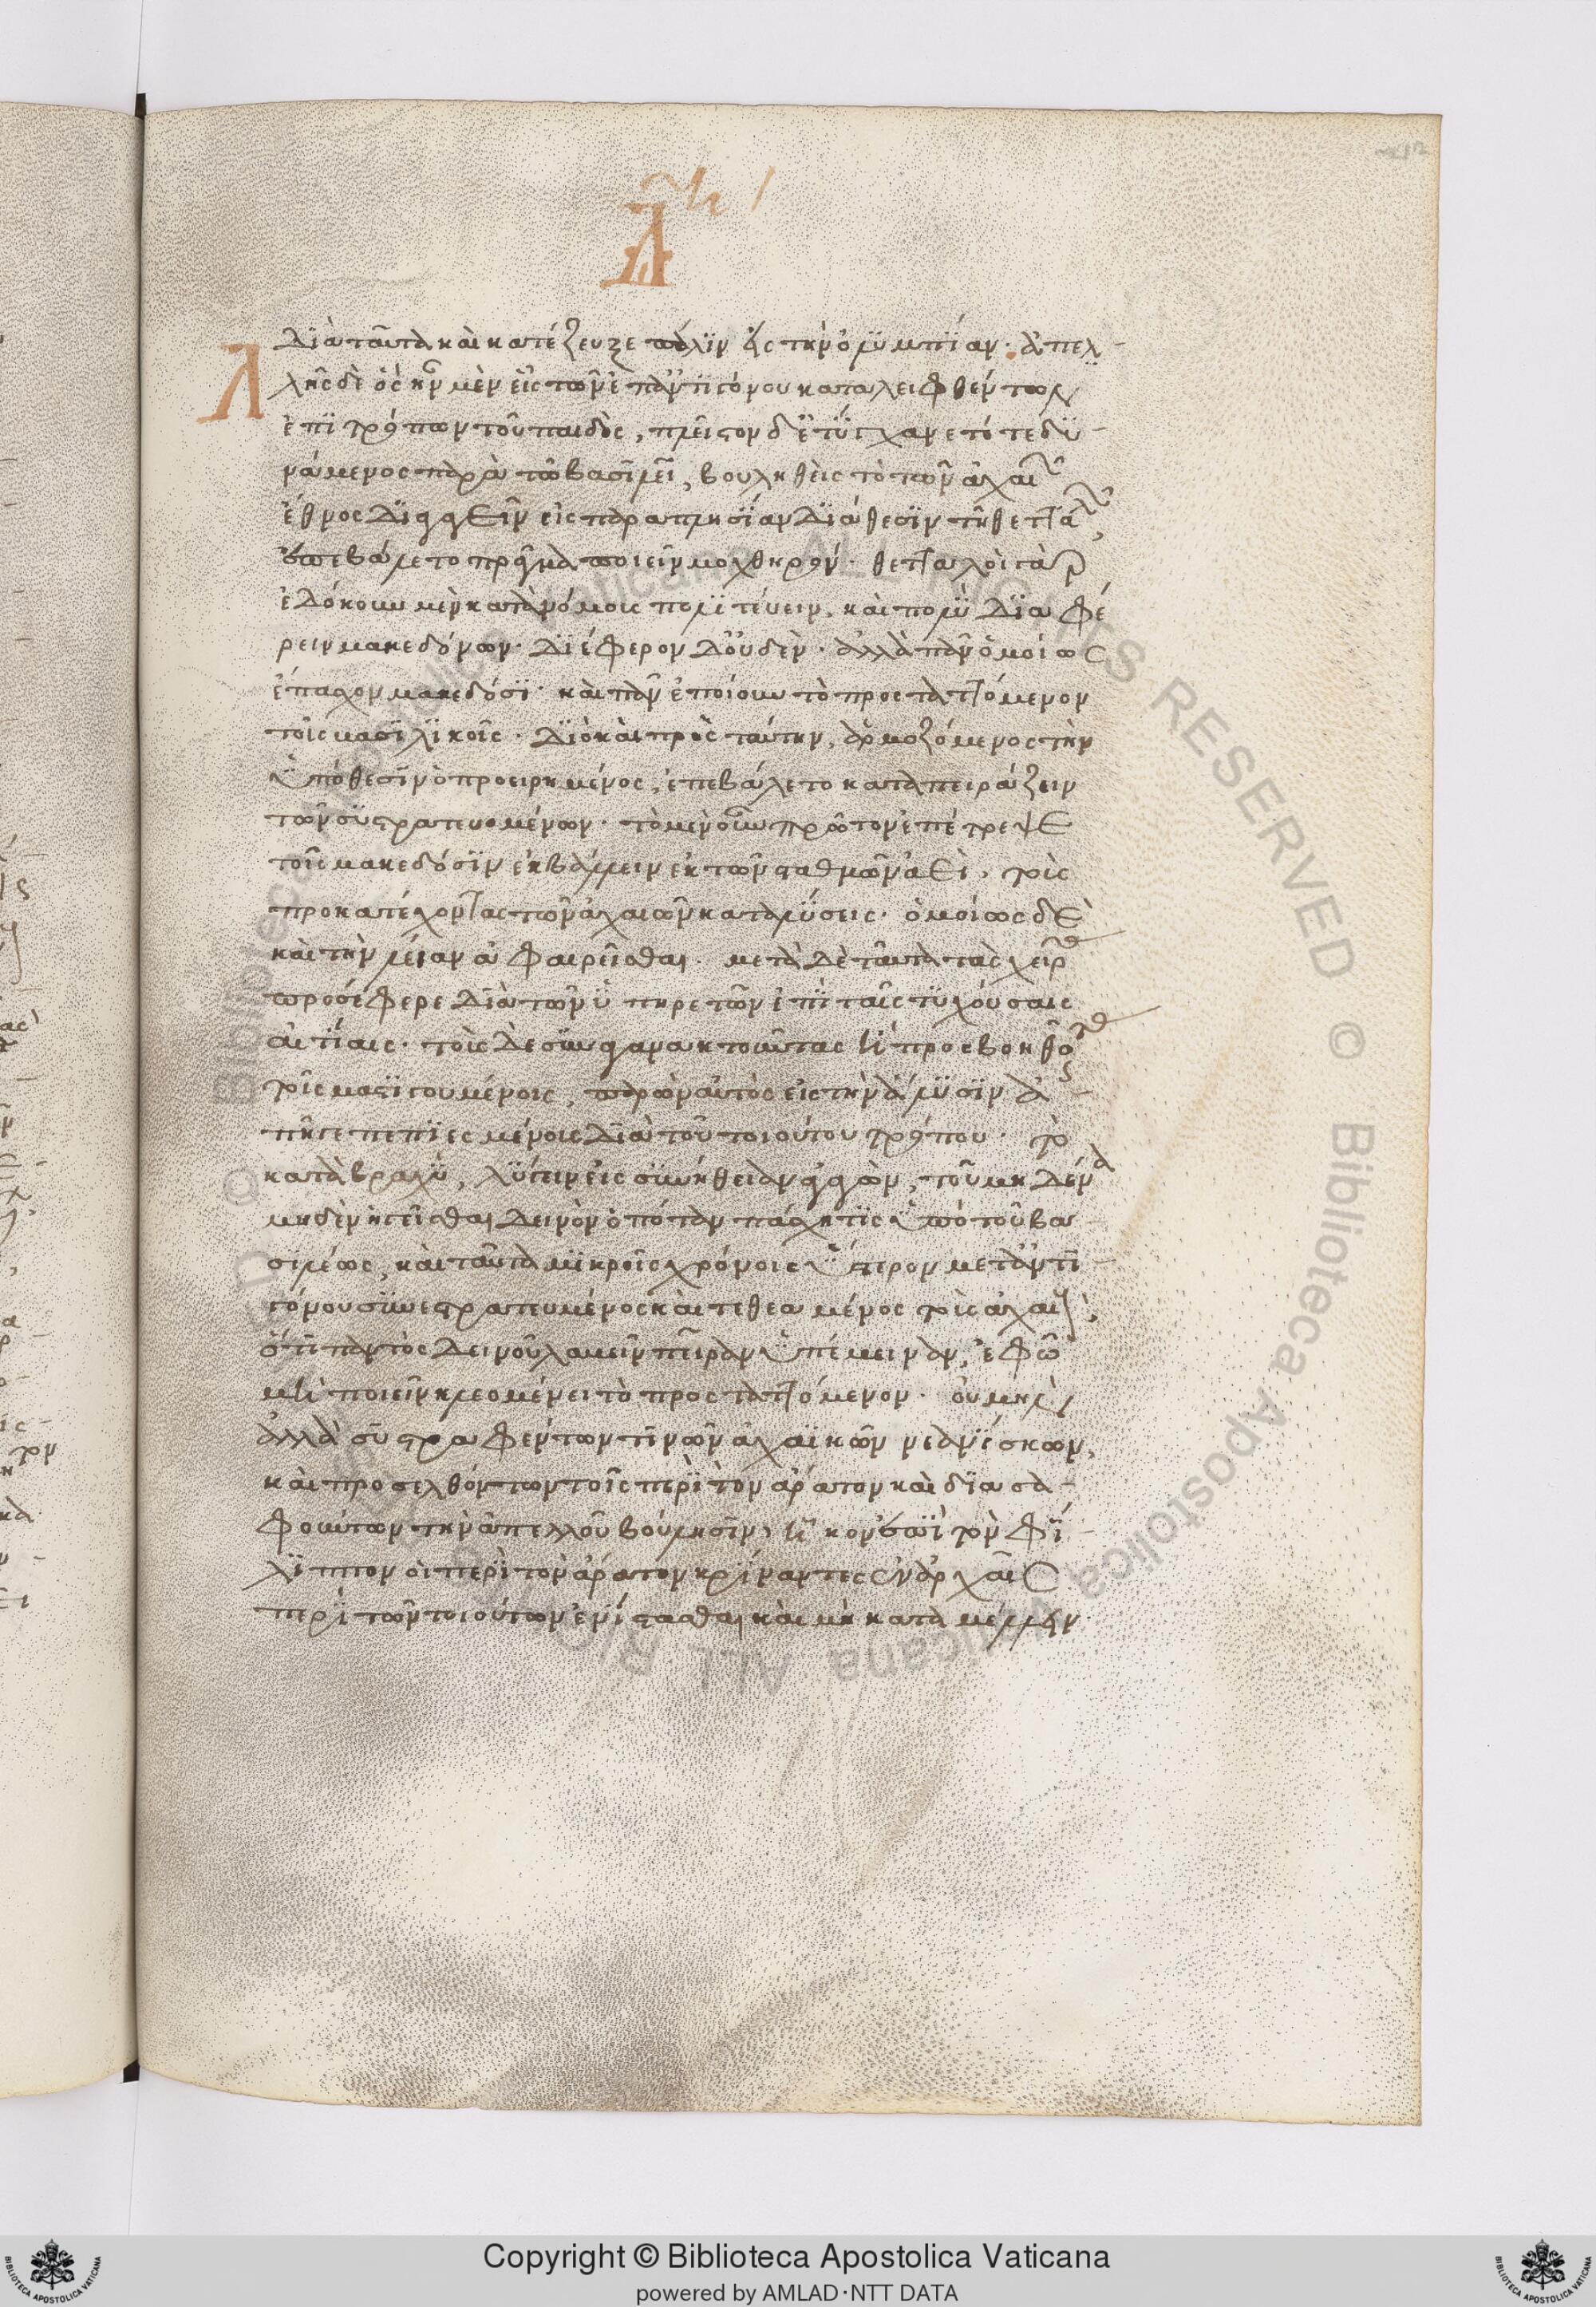 Διὰ ταῦτα καὶ κατέζευξε πάλιν εἰς τὴν ὀλυμπίαν· ἀπελ-
λῆς δὲ ὃς ἦν μὲν εἷς τῶν ἐπ' ἀντιγόνου καταλειφθέντων
ἐπιτρόπων τοῦ παιδὸς, πλεῖστον δ' ἐτύγχανε τότε δυ-
νάμενος παρὰ τῶ βασιλεῖ, βουληθεὶς τὸ τῶν ἀχαιῶν
ἔθνος ἀγαγεῖν εἰς παραπλησίαν διάθεσιν τῆ θετταλῶν,
ἐπεβάλετο πρᾶγμα ποιεῖν μοχθηρόν· θετταλοὶ γὰρ
ἐδόκουν μὲν κατὰ νόμους πολιτεύειν, καὶ πολὺ διαφέ
ρειν μακεδόνων· διέφερον δ' οὐδὲν· ἀλλὰ πᾶν ὁμοίως
ἔπασχον μακεδόσι· καὶ πᾶν ἐποίουν τὸ προσταττόμενον
τοῖς βασιλικοῖς· διὸ καὶ πρὸς ταύτην, ἁρμοζόμενος τὴν
ὑπόθεσιν ὁ προειρημένος, ἐπεβάλετο καταπειράζειν
τῶν συστρατευομένων· τὸ μὲν οὖν πρῶτον ἐπέτρεψε
τοῖς μακεδόσιν ἐκβάλλειν ἐκ τῶν σταθμῶν ἀεὶ, τοὺς
προκατέχοντας τῶν ἀχαιῶν καταλύσεις· ὁμοίως δὲ
καὶ τὴν λείαν ἀφαιρεῖσθαι· μετὰ δὲ ταῦτα τὰς χεῖρας
προσέφερε διὰ τῶν ὑπηρετῶν ἐπὶ ταῖς τυχούσαις
αἰτίαις· τοὺς δὲ συναγανακτοῦντας ἢ προσβοηθοῦντας
τοῖς μαστιγουμένοις, παρὼν αὐτὸς εἰς τὴν ἅλυσιν ἀ-
πῆγε πεπεισμένος διὰ τοῦ τοιούτου τρόπου· τὸ
κατὰ βραχὺ, λήσειν εἰς συνήθειαν ἀγαγὼν, τοῦ μηδένα
μηδὲν ἡγεῖσθαι δεινὸν ὁπότ' ἂν πάσχη τις ὑπὸ τοῦ βα-
σιλέως, καὶ ταῦτα μικροῖς χρόνοις ὕστερον μετ' ἀντι-
γόνου συνεστρατευμένος καὶ τεθεαμένος τοὺς ἀχαιοὺς,
ὅτι παντὸς δεινοῦ λαβεῖν πεῖραν ὑπέμειναν, ἐφ' ὧ
μὴ ποιεῖν κλεομένει τὸ προσταττόμενον· οὐ μὴν
ἀλλὰ συστραφέντων τινῶν ἀχαϊκῶν νεανίσκων,
καὶ προσελθόντων τοῖς περὶ τὸν ἄρατον καὶ διασα-
φούντων τὴν ἀπελλοῦ βούλησιν, ἧκον ἐπὶ τὸν φί-
λιππον οἱ περὶ τὸν ἄρατον κρίναντες ἐν ἀρχαῖς
περὶ τῶν τοιούτων ἐνίστασθαι καὶ μὴ καταμέλλειν